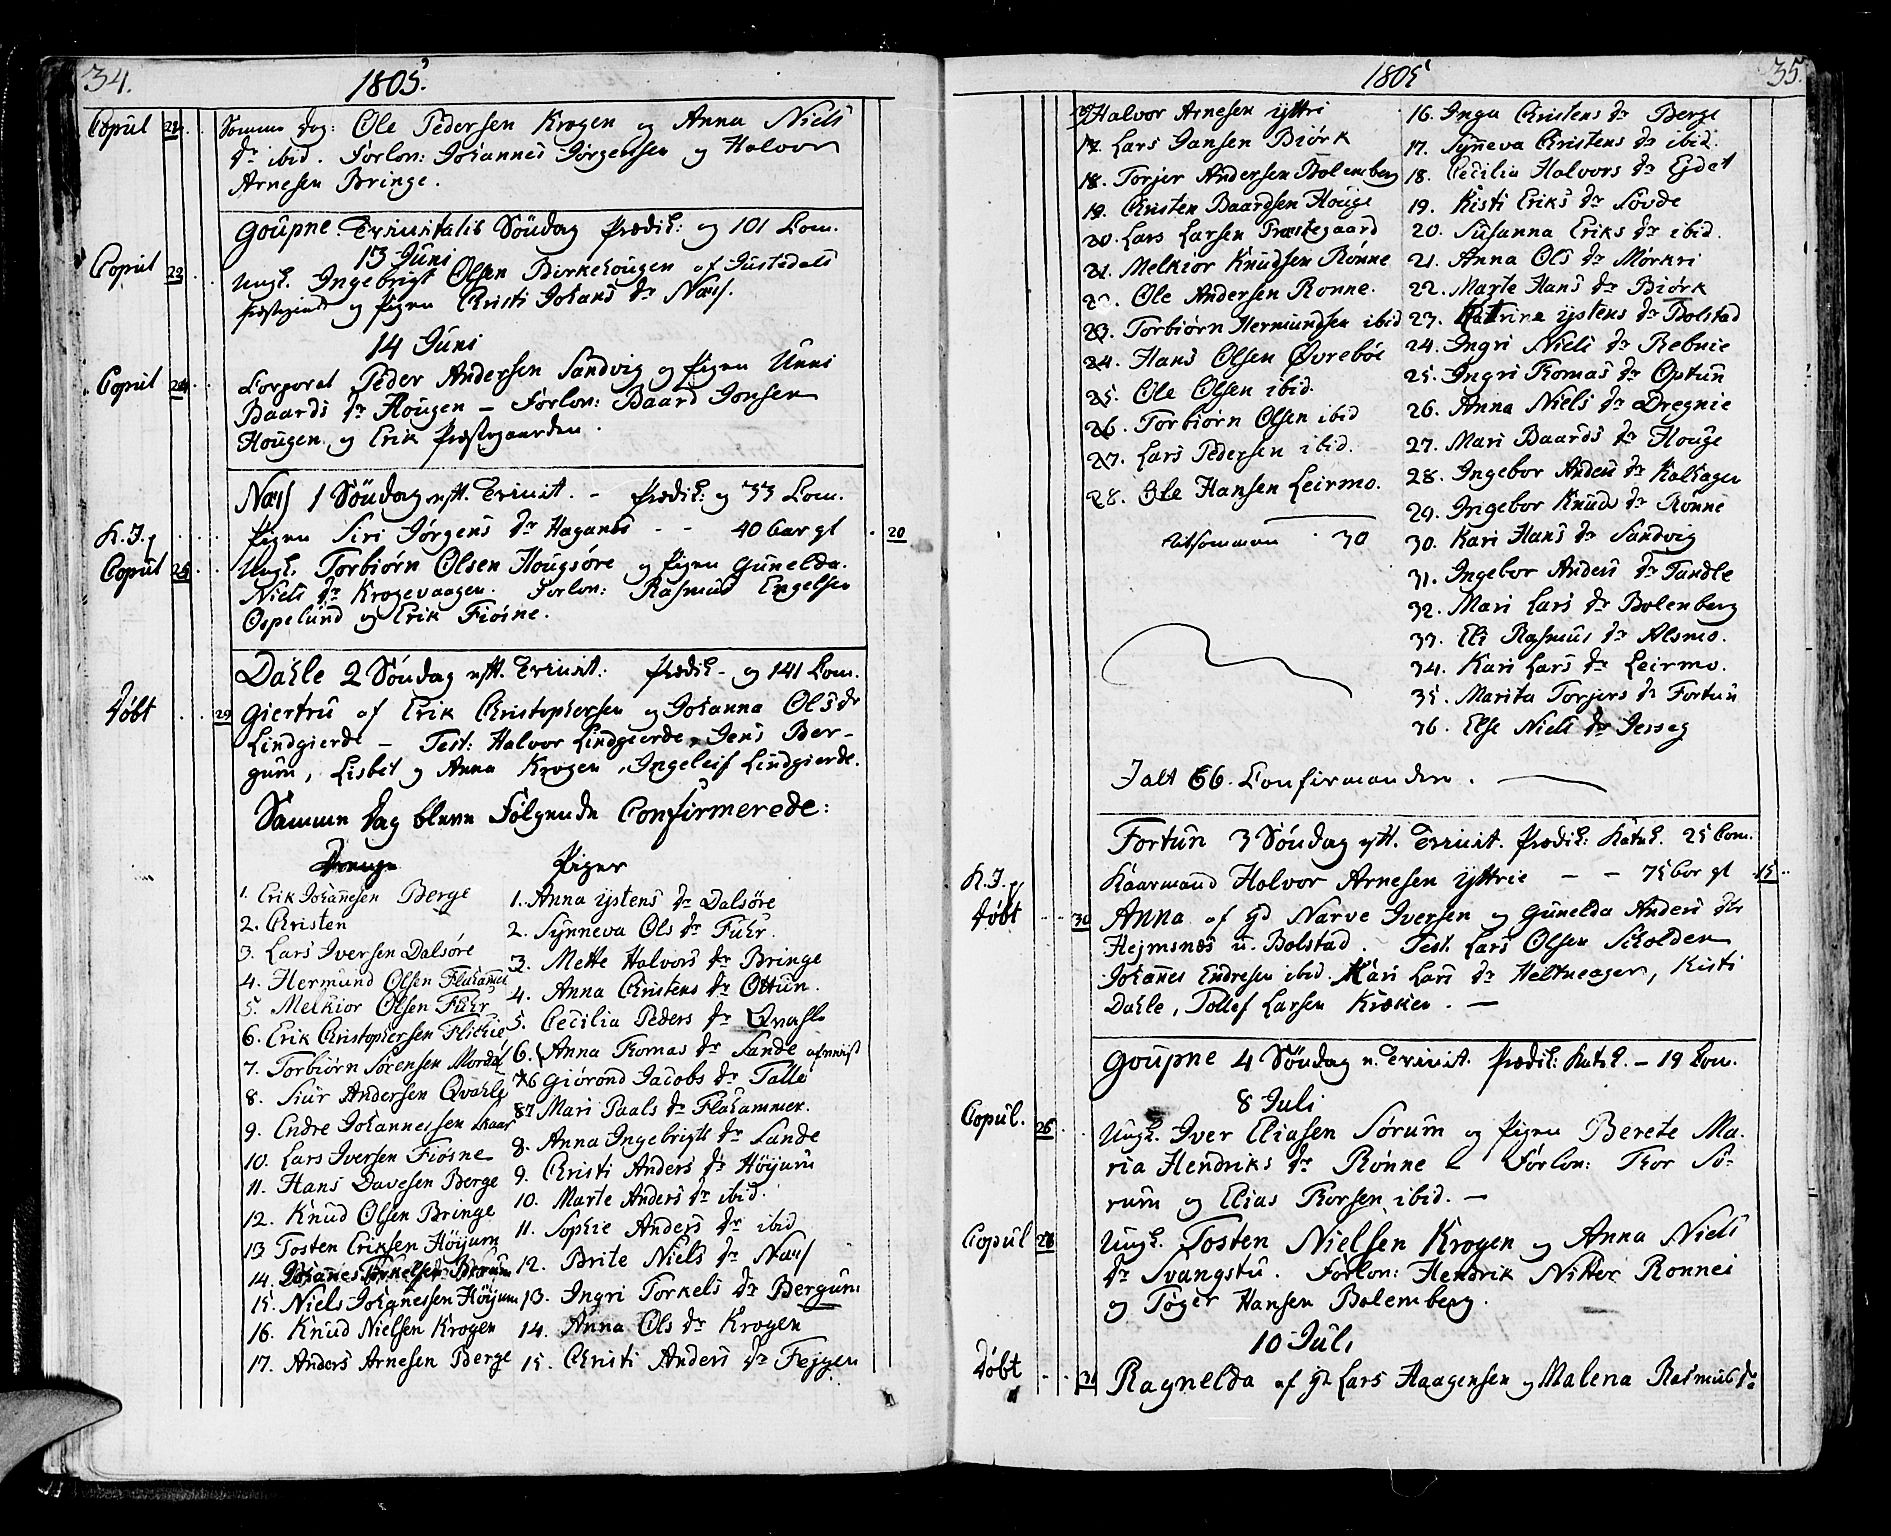 34.
1805.
Copul 22. Samme dag: Ole Pedersen Krogen og Anna Niels
dr ibid. Forlov: Johannes Jørgensen og Halvor
Arnesen Bringe.
Goupne Trinitatis Söndag Prædik: og 101 Com.
13 Juni
Copul 23 Ungk. Ingebrigt Olsen Birkehougen af Justedals
Præstegield og Pigen Christi Johans dr Næss.
14 Juni
Copul 24 Corporal Peder Andersen Sandvig og Pigen Unni
Baards dr Hougen – Forlov: Baard Jonsen
Hougen og Erik Præstegaarden.
Næss 1 Söndag eft. Trinit. – Prædik: og 33 Com.
K.I. Pigen Siri Jörgens dr Haganes – – 40 Aar gl 20
Copul 25 Ungk. Torbiörn Olsen Hougsöre og Pigen Gunelda
Niels dr Krogevaagen. Forlov: Rasmus Engelsen
Ospelund og Erik Fiösne.
Dahle 2 Söndag eft. Trinit: Prædik – og 141 Com.
Döbt 29 Giertru af Erik Christophersen og Johanna Ols dr
Lindgierde – Test: Halvor Lindgierde, Jens Ber-
gum, Lisbet og Anna Krogen, Ingeleif Lindgierde.
Samme Dag bleve Fölgende Confirmerede:
Drenge
1. Erik Johannesen Berge
2. Christen
3. Lars Iversen Dalsöre
4. Hermund Olsen Flahamer
5. Melkior Olsen Fuhr
6. Erik Christophersen Flikie
7. Torbiörn Sörensen Mordal
8. Siur Andersen Qvahle
9. Endre Johannessen Skaar
10. Lars Iversen Fiösne
11. Hans Davesen Berge
12. Knud Olsen Bringe
13 Tosten Eriksen Höijum
14. Johannes Torkelsen Berum
15. Niels Johannessen Höijum
16. Knud Nielsen Krogen
17. Anders Arnesen Berge
Piger
1. Anna Ystens dr Dalsöre
2. Synneva Ols dr Fuhr.
3. Mette Halvors dr Bringe
4. Anna Christens dr Ottun.
5. Cecilia Peders dr Qvahle
6. Anna Thomas dr Sande afviist
7 6 Giörond Jacobs dr Talle
8 7 Mari Paals dr Flahammer.
8. Anna Ingebrigts dr Sande
9. Christi Anders dr Höijum
10. Marte Anders dr ibid.
11. Sophie Anders dr ibid
12. Brite Niels dr Næss
13. Ingri Torkels dr Bergum
14. Anna Ols dr Krogen
15. Christi Anders dr Fejgen
1805
35.
Halvor Arnesen Yttri
17. Lars Jansen Biörk
18. Torjer Andersen Bolemberg
19. Christen Baardsen Houge
20. Lars Larsen Præstegaard
21. Melkior Knudsen Rönne
22. Ole Andersen Ronne.
23. Torbiörn Hermundsen ibid
24. Hans Olsen Øvreböe
25. Ole Olsen ibid.
26. Torbiörn Olsen ibid
27. Lars Pedersen ibid.
28. Ole Hansen Leirmo.
Tilsammen 30
16. Inga Christens dr Berge
17. Synneva Christens dr ibid.
18. Cecilia Halvors dr Ejdet
19. Kisti Eriks dr Sovde
20. Susanna Eriks dr ibid.
21. Anna Ols dr Mörkri
22. Marte Hans dr Biörk
23. Katrine Ystens dr Bolstad
24. Ingri Niels dr Rebnie
25. Ingri Thomas dr Optun
26. Anna Niels dr Dregnie
27. Mari Baards dr Houge
28. Ingebor Anders dr Kalhagen
29. Ingebor Knuds dr Rönne
30. Kari Hans dr Sandvig
31. Ingebor Anders dr Tandle
32. Mari Lars dr Bolenberg
33. Eli Rasmus dr Alsmo.
34. Kari Lars dr Leirmo.
35. Marita Torjers dr Fortun
36. Else Niels dr Jersseg
I alt 66. Confirmanden.
Fortun 3 Söndag eft. Trinit. Prædik: Katek. 25 Com.
K.I. Kaarmand Halvor Arnesen Yttrie – – 75 Aar gl 15
Döbt 30 Anna af Narve Iversen og Gunelda Anders dr
Hejmsnæs u. Bolstad. Test. Lars Olsen Skolden
Johannes Endresen ibid. Kari Lars dr Heltneager, Kisti
Dahle, Tollef Larsen Kröken. –
Goupne 4 Söndag e. Trinit. Prædik: Katek. – 19 Com.
8 Juli
Copul. 26 Ungk. Iver Eliasen Sørum og Pigen Berete Ma-
ria Hendriks dr Rönne – Forlov: Thor Sö-
rum og Elias Thorsen ibid. –
Copul 28 Ungk. Tosten Nielsen Krogen og Anna Niels
dr Svangstu. Forlov: Hendrik Nitter Ronnei
og Töger Hansen Bolemberg.
10 Juli
Döbt 31 Ragnelda af Lars Haagensen og Malena Rasmus dr